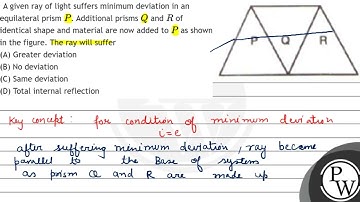 A given ray of light suffers minimum deviation in an
equilateral prism P. Additional prisms Q and R of
identical shape and material are now added to P as shown
in the figure. The ray will suffer
(A) Greater deviation
(B) No deviation
(C) Same deviation
(D) Total internal reflection
P Q R
Key concept : for condition of minimum deviation
i=e
after suffering minimum deviation, ray became
parallel to the Base of system
as prism Q and R are made up
PW